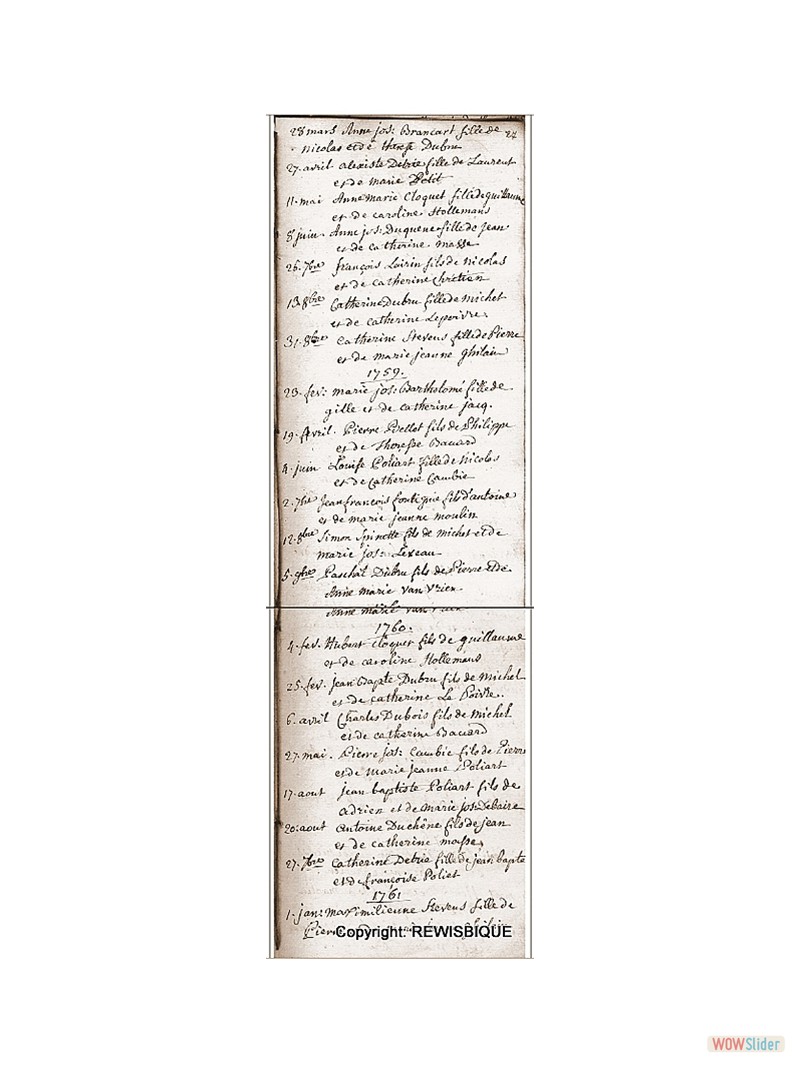 28 mars Anne jos: Brancart fille de 24
Nicolas et de therese Dubru
27. avril alexiste Debrie fille de Laurent
et de marie Petit
11. mai Anne marie Cloquet fille de guillaume
et de caroline Hollemans
8 juin. Anne jos: Duquene fille de jean
et de catherine masse
26. 7bre françois Loirin fils de Nicolas
et de catherine Chretien
13. 8bre Catherine Dubru fille de Michel
et de catherine Lepoivre
31. 8bre Catherine Stevens fille de Pierre
et de marie jeanne ghilain
1759.
23. fev: marie jos: Bartholomé fille de
gille et de catherine jacq.
19. avril. Pierre Poellet fils de Philippe
et de Therese Bauard
4. juin Louise Poliart fille de Nicolas
et de Catherine Cambie
2. 7bre jean françois fontignie fils d'antoine
et de marie jeanne moulin
12. 8bre Simon Spinette fils de michel et de
marie jos: Lexeau
5. 9bre Paschal Dubru fils de Pierre et de
Anne marie van Vrien
Anne marie van Vrien
1760.
4. fev. Hubert Cloquet fils de guillaume
et de caroline Hollemans
25. fev. jean Bapte Dubru fils de Michel
et de catherine Le Poivre.
6. avril Charles Dubois fils de Michel
et de catherine Bauard
27. mai. Pierre jos: Cambie fils de Pierre
et de marie jeanne Poliart
17. aout jean baptiste Poliart fils de
adrien et de marie jos: Debaire
20. aout antoine Duchêne fils de jean
et de catherine masse
27. 7bre Catherine Debrie fille de jean bapte
et de françoise Poliet
1761
1. jan: maximilienne Stevens fille de
Pierre
Copyright: REWISBIQUE
WOWSlider